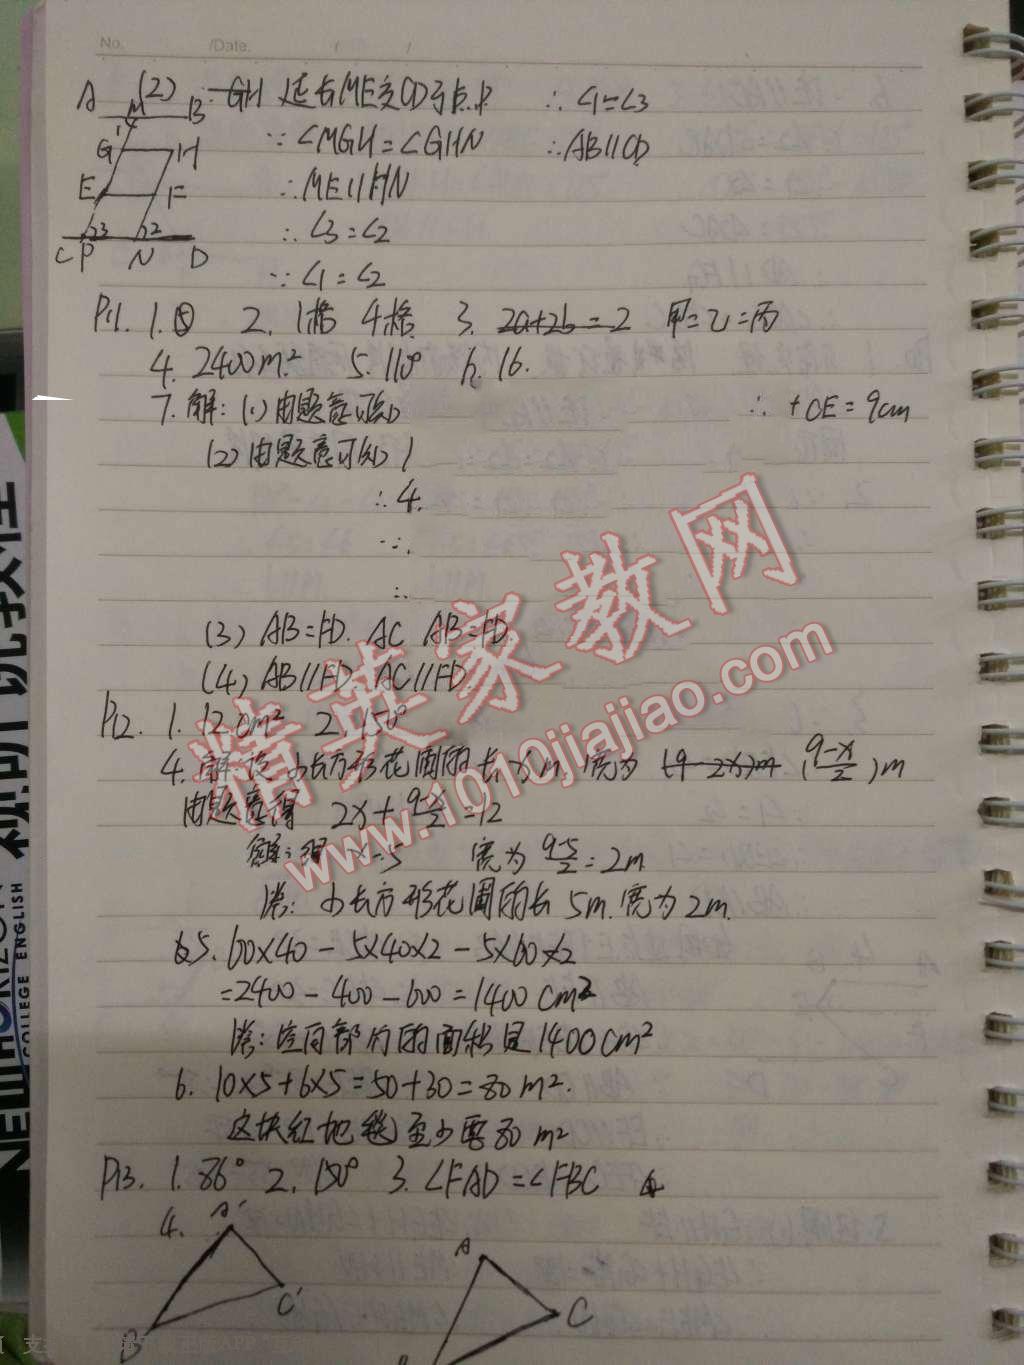 No. /Date. / /
(2) ∵ GH 延长ME交CD于点P ∴ ∠1=∠3
A M B
∵ ∠MGH=∠GHN ∴ AB∥CD
G H
∴ ME∥HN
E F
∴ ∠3=∠2
3 2
C P N D
∵ ∠1=∠2
P11. 1. ⑤ 2. 1格 4格 3. 2a+2b=2 甲=乙=丙
4. 2400m² 5. 110° 6. 16.
7. 解: (1) 由题意可知 ∴ +CE=9cm
(2) 由题意可知
∴ 4.
∵
∴
(3) AB=FD. AC AB=FD.
(4) AB∥FD AC∥FD.
P12. 1. 12cm² 2. 150°
4. 解:设小长方形花圃的长xm 宽为 (9-2x)m (9-x/2)m
由题意得 2x+9-x/2=12
解:得 x=5 宽为 9-5/2=2m
答: 小长方形花圃的长5m.宽为2m.
5. 60×40-5×40×2-5×60×2
=2400-400-600=1400cm²
答:空白部分的面积是1400cm²
6. 10×5+6×5=50+30=80m².
这块红地毯至少要80m²
P13. 1. 86° 2. 150° 3. ∠FAD=∠FBC
4. A' A
C' C
B'
精英家教网
www.1010jiajiao.com
NEW HORIZON
COLLEGE ENGLISH